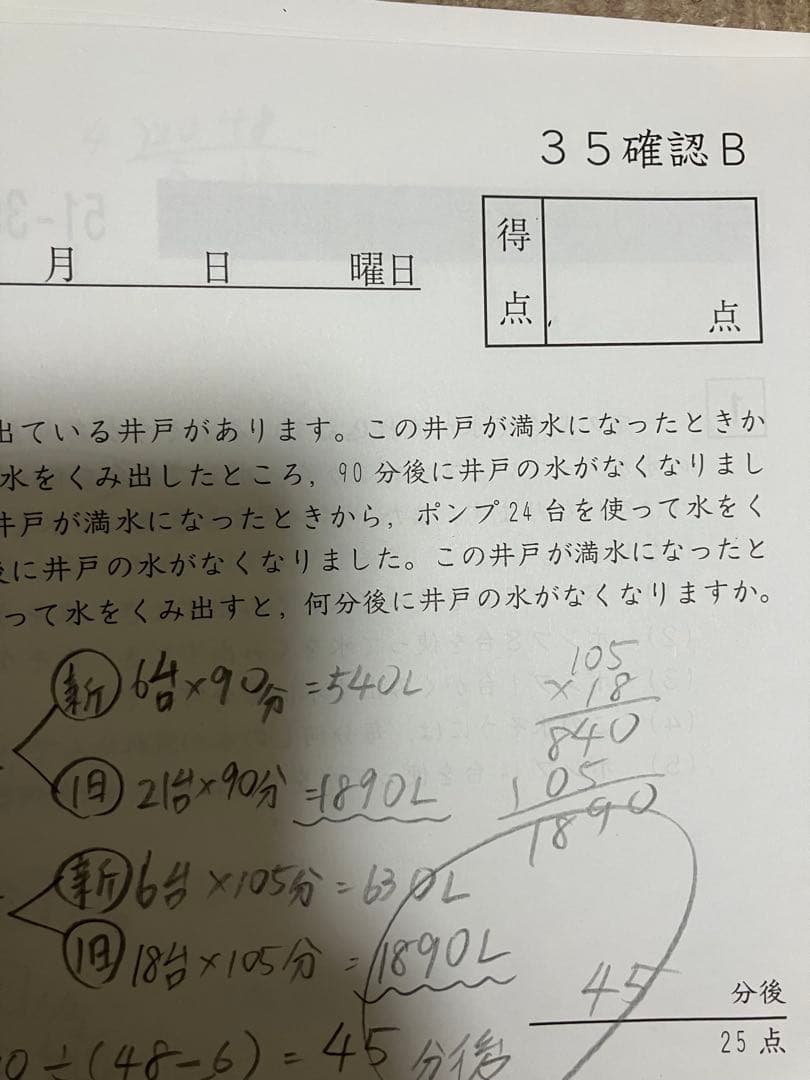 35確認B
月 日 曜日
得点 点
出ている井戸があります。この井戸が満水になったときか
水をくみ出したところ, 90分後に井戸の水がなくなりまし
井戸が満水になったときから, ポンプ24台を使って水をく
後に井戸の水がなくなりました。この井戸が満水になったと
って水をくみ出すと, 何分後に井戸の水がなくなりますか。
新 6台×90分=540L
旧 21台×90分=1890L
新 6台×105分=630L
旧 18台×105分=1890L
0÷(48-6)=45分後
105
×18
840
105
1890
45 分後
25点